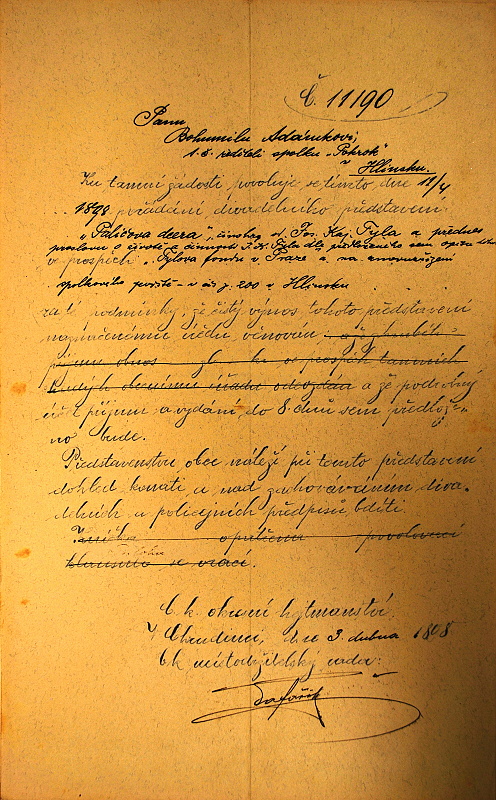 Č. 11190
Panu
Bohumilu Adámkovi,
t. č. řediteli spolku „Pokrok"
v Hlinsku.
Ku tamní žádosti povoluje se tímto dne 11/4
1898 pořádání divadelního představení
„Paličova dcera", činohra od Jos. Kaj. Tyla a přednes
proslovu o životě a činnosti J. K. Tyla dle předloženého sem opisu
ve prospěch „Tylova fondu v Praze a na znovuzřízení
spolkového jeviště – v čís. p. 200 v Hlinsku
za té podmínky, že čistý výnos tohoto představení
naznačenému účelu věnován, a že
příjmu obnos zl kr ve prospěch tamních
chudých obecnímu úřadu odevzdán a že podrobný
účet příjmu a vydání do 8 dnů sem předlož=
no bude.
Představenstvu obce náleží při temto představení
dohled konati a nad zachováváním diva-
delních a policejních předpisů bdíti.
opatřena povolovací
klausulí se vrací.
C. k. okresní hejtmanství
V Chrudimi, dne 3. dubna 1898
C. k. místodržitelský rada:
Šafařík